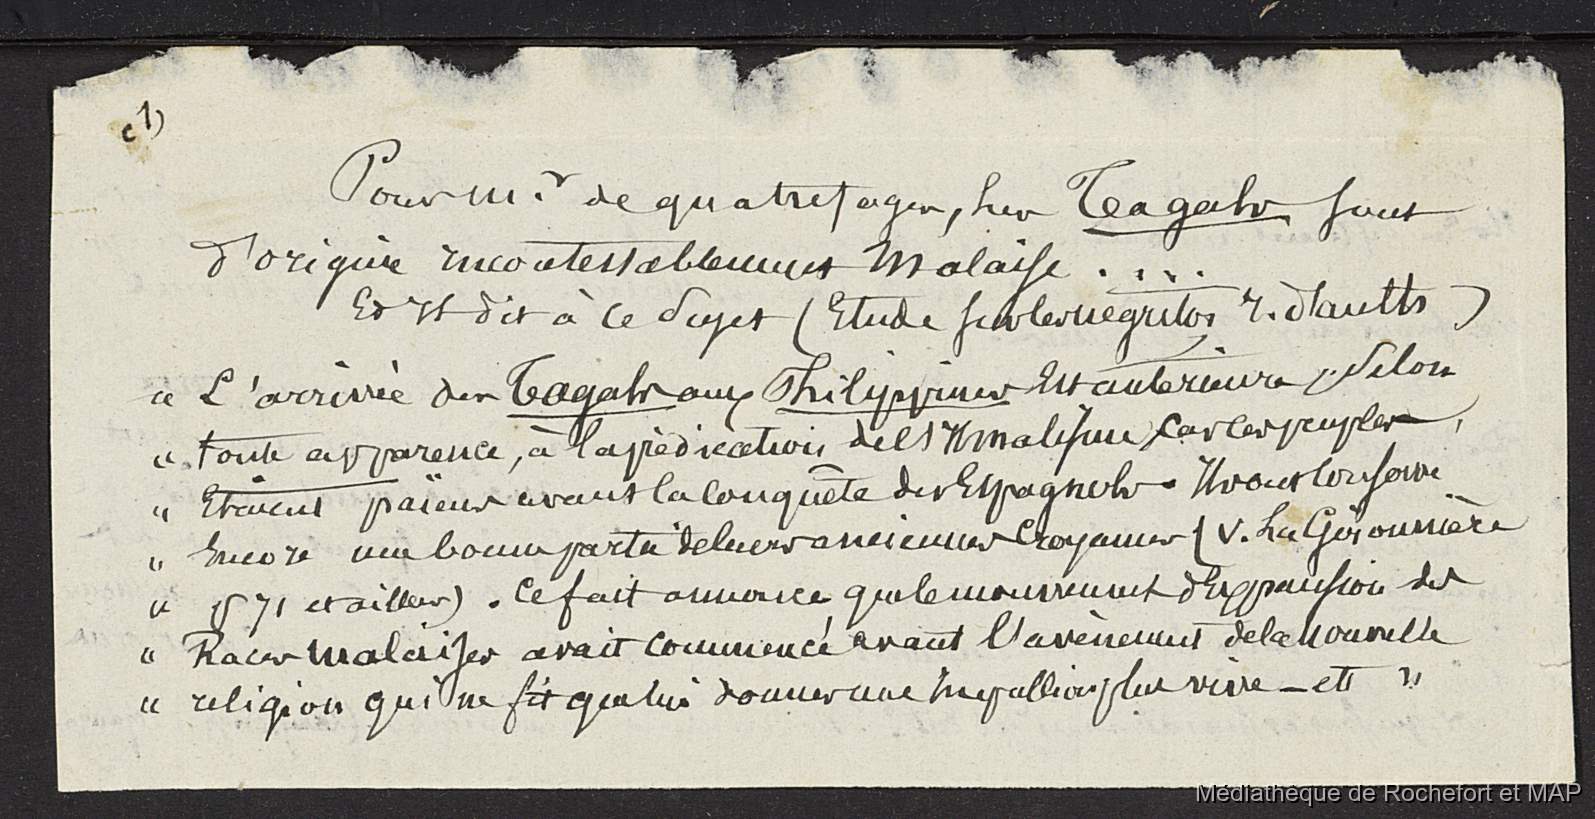 (1)
Pour Mr. de quatrefages, les Tagals sont
d'origine incontestablement Malaise . . . .
Et il dit à ce Sujet ( Etude sur les negritos )
« L'arrivée des Tagals aux Philippines est antérieure, selon
« toute apparence, à la prédication de l'Islmalisme, car ces peuples
« Etaient païens avant la Conquête des Espagnols. Ils ont Conservé
« Encore une bonne partie de leurs anciennes Croyances ( V. La Gironnière
« p 71 et ailleurs ). Ce fait annonce que le mouvement d'Expansion des
« Races malaises avait commencé avant l'avènement de la nouvelle
« religion qui ne fit que lui donner une Impulsion plus vive - etc »
Médiathèque de Rochefort et MAP